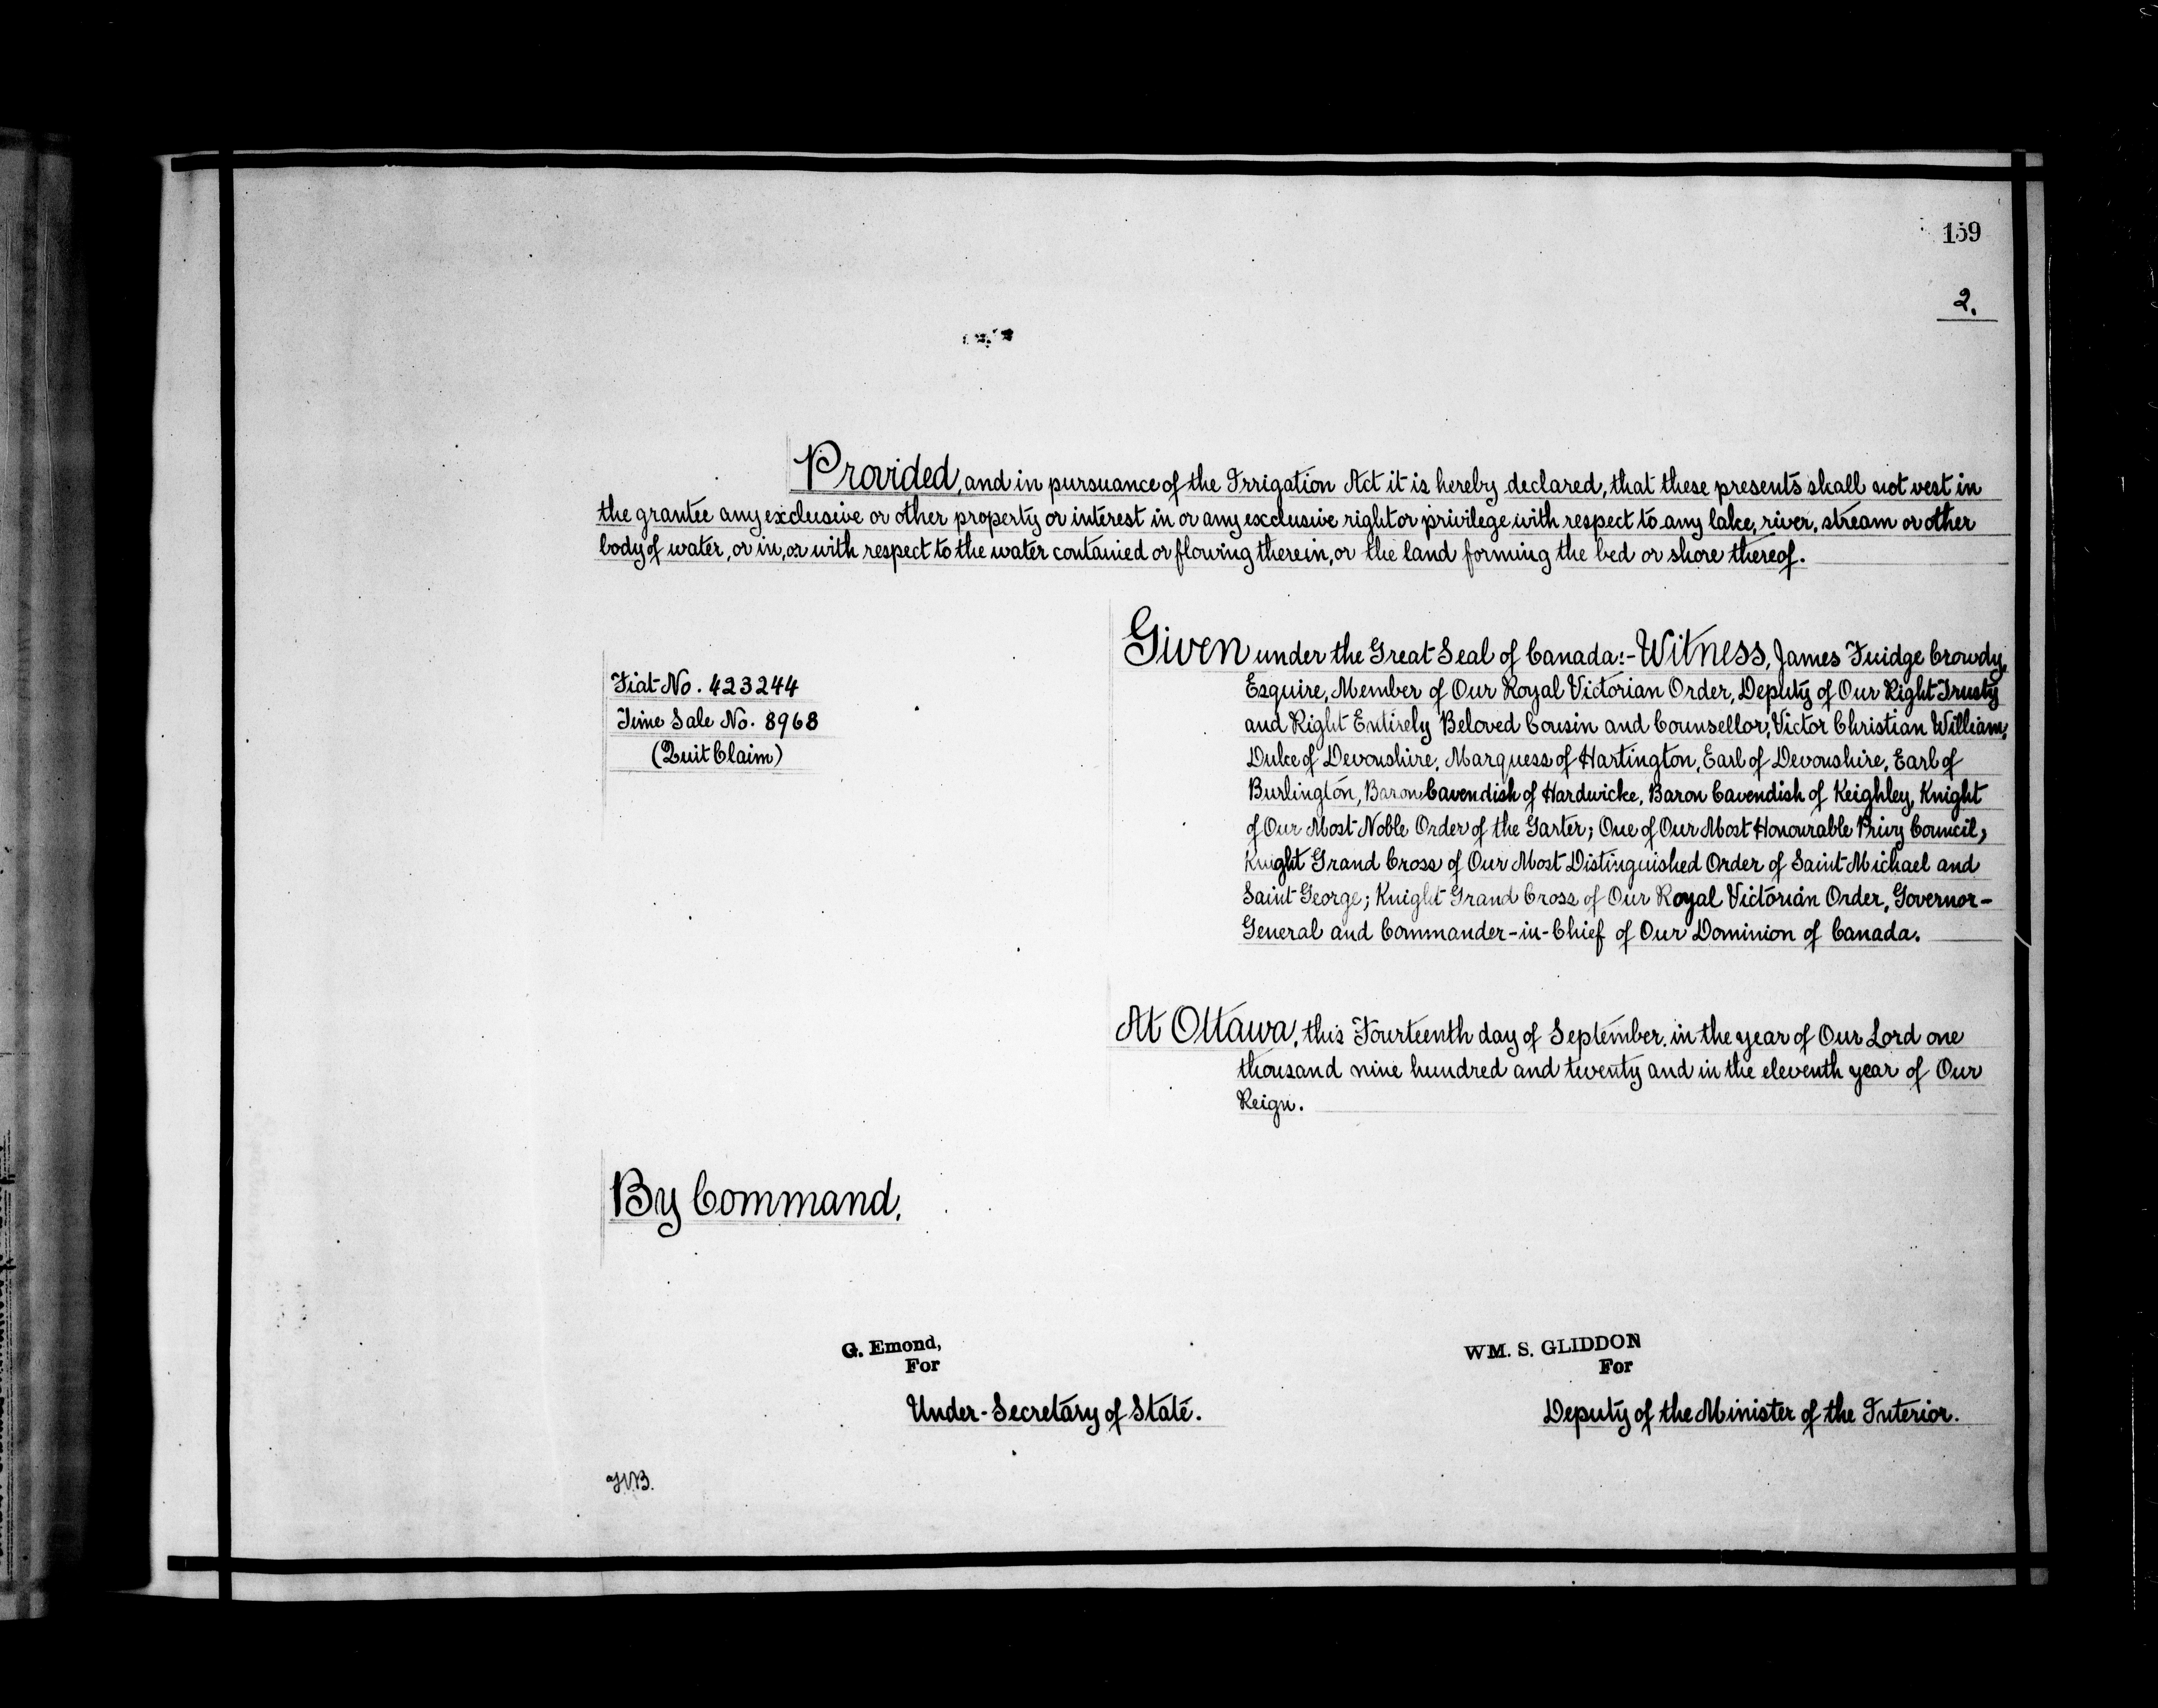 159
2.
Provided, and in pursuance of the Irrigation Act it is hereby declared, that these presents shall not vest in
the grantee any exclusive or other property or interest in or any exclusive right or privilege with respect to any lake, river, stream or other
body of water, or in, or with respect to the water contained or flowing therein, or the land forming the bed or shore thereof.
Fiat No. 423244
Time Sale No. 8968
(Quit Claim)
Given under the Great Seal of Canada:- Witness, James Fuidge Crowdy,
Esquire, Member of Our Royal Victorian Order, Deputy of Our Right Trusty
and Right Entirely Beloved Cousin and Counsellor, Victor Christian William,
Duke of Devonshire, Marquess of Hartington, Earl of Devonshire, Earl of
Burlington, Baron Cavendish of Hardwicke, Baron Cavendish of Keighley, Knight
of Our Most Noble Order of the Garter; One of Our Most Honourable Privy Council;
Knight Grand Cross of Our Most Distinguished Order of Saint Michael and
Saint George; Knight Grand Cross of Our Royal Victorian Order, Governor-
General and Commander-in-Chief of Our Dominion of Canada.
At Ottawa, this Fourteenth day of September in the year of Our Lord one
thousand nine hundred and twenty and in the eleventh year of Our
Reign.
By Command,
G. Emond,
For
Under-Secretary of State.
WM. S. GLIDDON
For
Deputy of the Minister of the Interior.